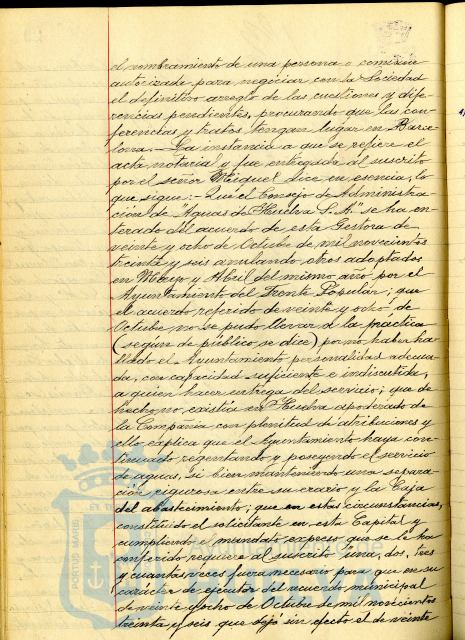 el nombramiento de una persona o comisión
autorizada para negociar con la Sociedad
el definitivo arreglo de las cuestiones y dife-
rencias pendientes, procurando que las con-
ferencias y tratos tengan lugar en Barce-
lona.- La instancia a que se refiere el
acta notarial y fue entregada al suscrito
por el señor Miquel dice en esencia, lo
que sigue:- Que el Consejo de Administra
ción de "Aguas de Huelva S. A." se ha en-
terado del acuerdo de esta Gestora de
veinte y ocho de Octubre de mil novecientos
treinta y seis anulando otros adoptados
en Mayo y Abril del mismo año por el
Ayuntamiento del Frente Popular; que
el acuerdo referido de veinte y ocho de
Octubre no se pudo llevar a la práctica
(según de público se dice) por no haber ha-
llado el Ayuntamiento personalidad adecua-
da, con capacidad suficiente e indiscutida,
a quien hacer entrega del servicio; que de
hecho, no existía en Huelva apoderado de
la Compañia con plenitud de atribuciones y
ello explica que el Ayuntamiento haya con-
tinuado regentando y poseyendo el servicio
de aguas, si bien manteniendo una separa-
ción rigurosa entre su erario y la Caja
del abastecimiento; que en estas circunstancias,
constituido el solicitante en esta Capital y
cumpliendo el mandato expreso que se le ha
conferido requiere al suscrito una, dos, tres
y cuantas veces fuera necesario para que en su
carácter de ejecutor del acuerdo municipal
de veinte y ocho de Octubre de mil novecientos
treinta y seis que dejó sin efecto el de veinte
PORTUS MARIS